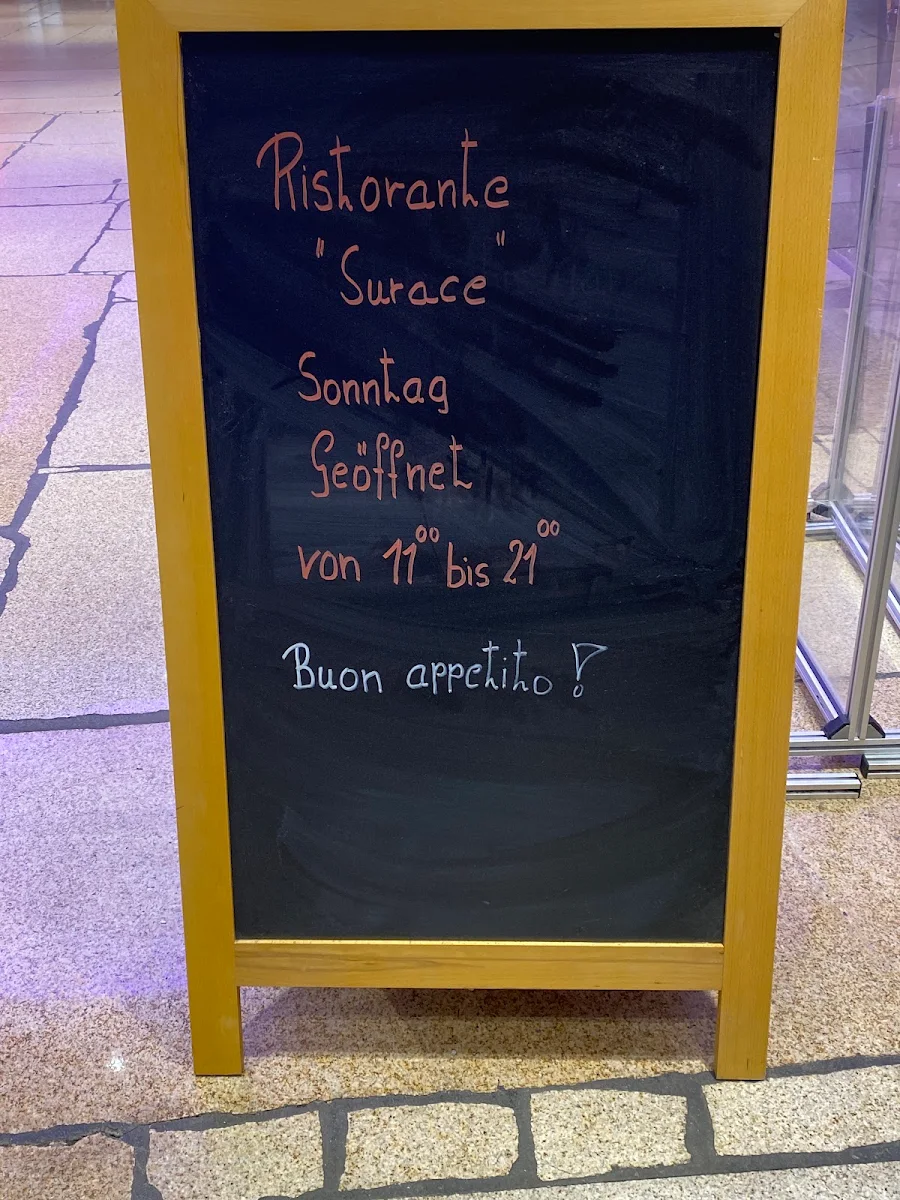 Ristorante
"Surace"
Sonntag
Geöffnet
von 11⁰⁰ bis 21⁰⁰
Buon appetito!